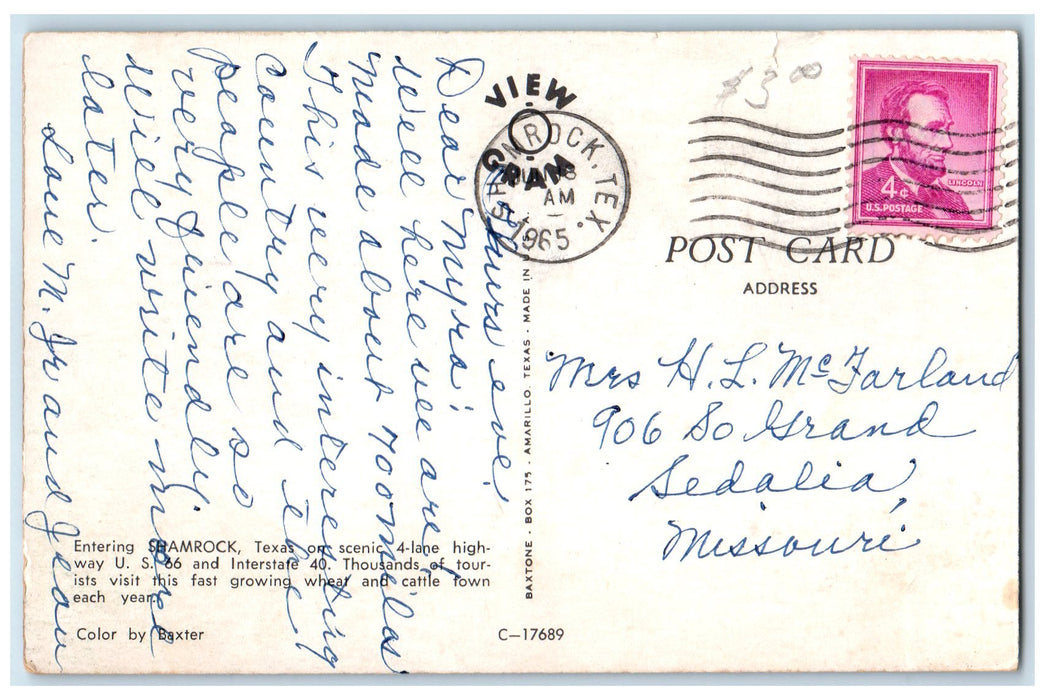 $3.00
VIEW
GRAM
SHAMROCK, TEX.
8
AM
1965
4¢
LINCOLN
U.S. POSTAGE
POST CARD
ADDRESS
Thurs eve!
Dear Myra:
Well here we are,
made about 700 miles
This very interesting
Country and the
people are so
very friendly.
Will write more
later.
Love M. Jr and Jean
Mrs H. L. McFarland
906 So Grand
Sedalia,
Missouri
BAXTONE - BOX 175 - AMARILLO, TEXAS - MADE IN U.S.A.
Entering SHAMROCK, Texas on scenic 4-lane high-
way U. S. 66 and Interstate 40. Thousands of tour-
ists visit this fast growing wheat and cattle town
each year.
Color by Baxter
C—17689